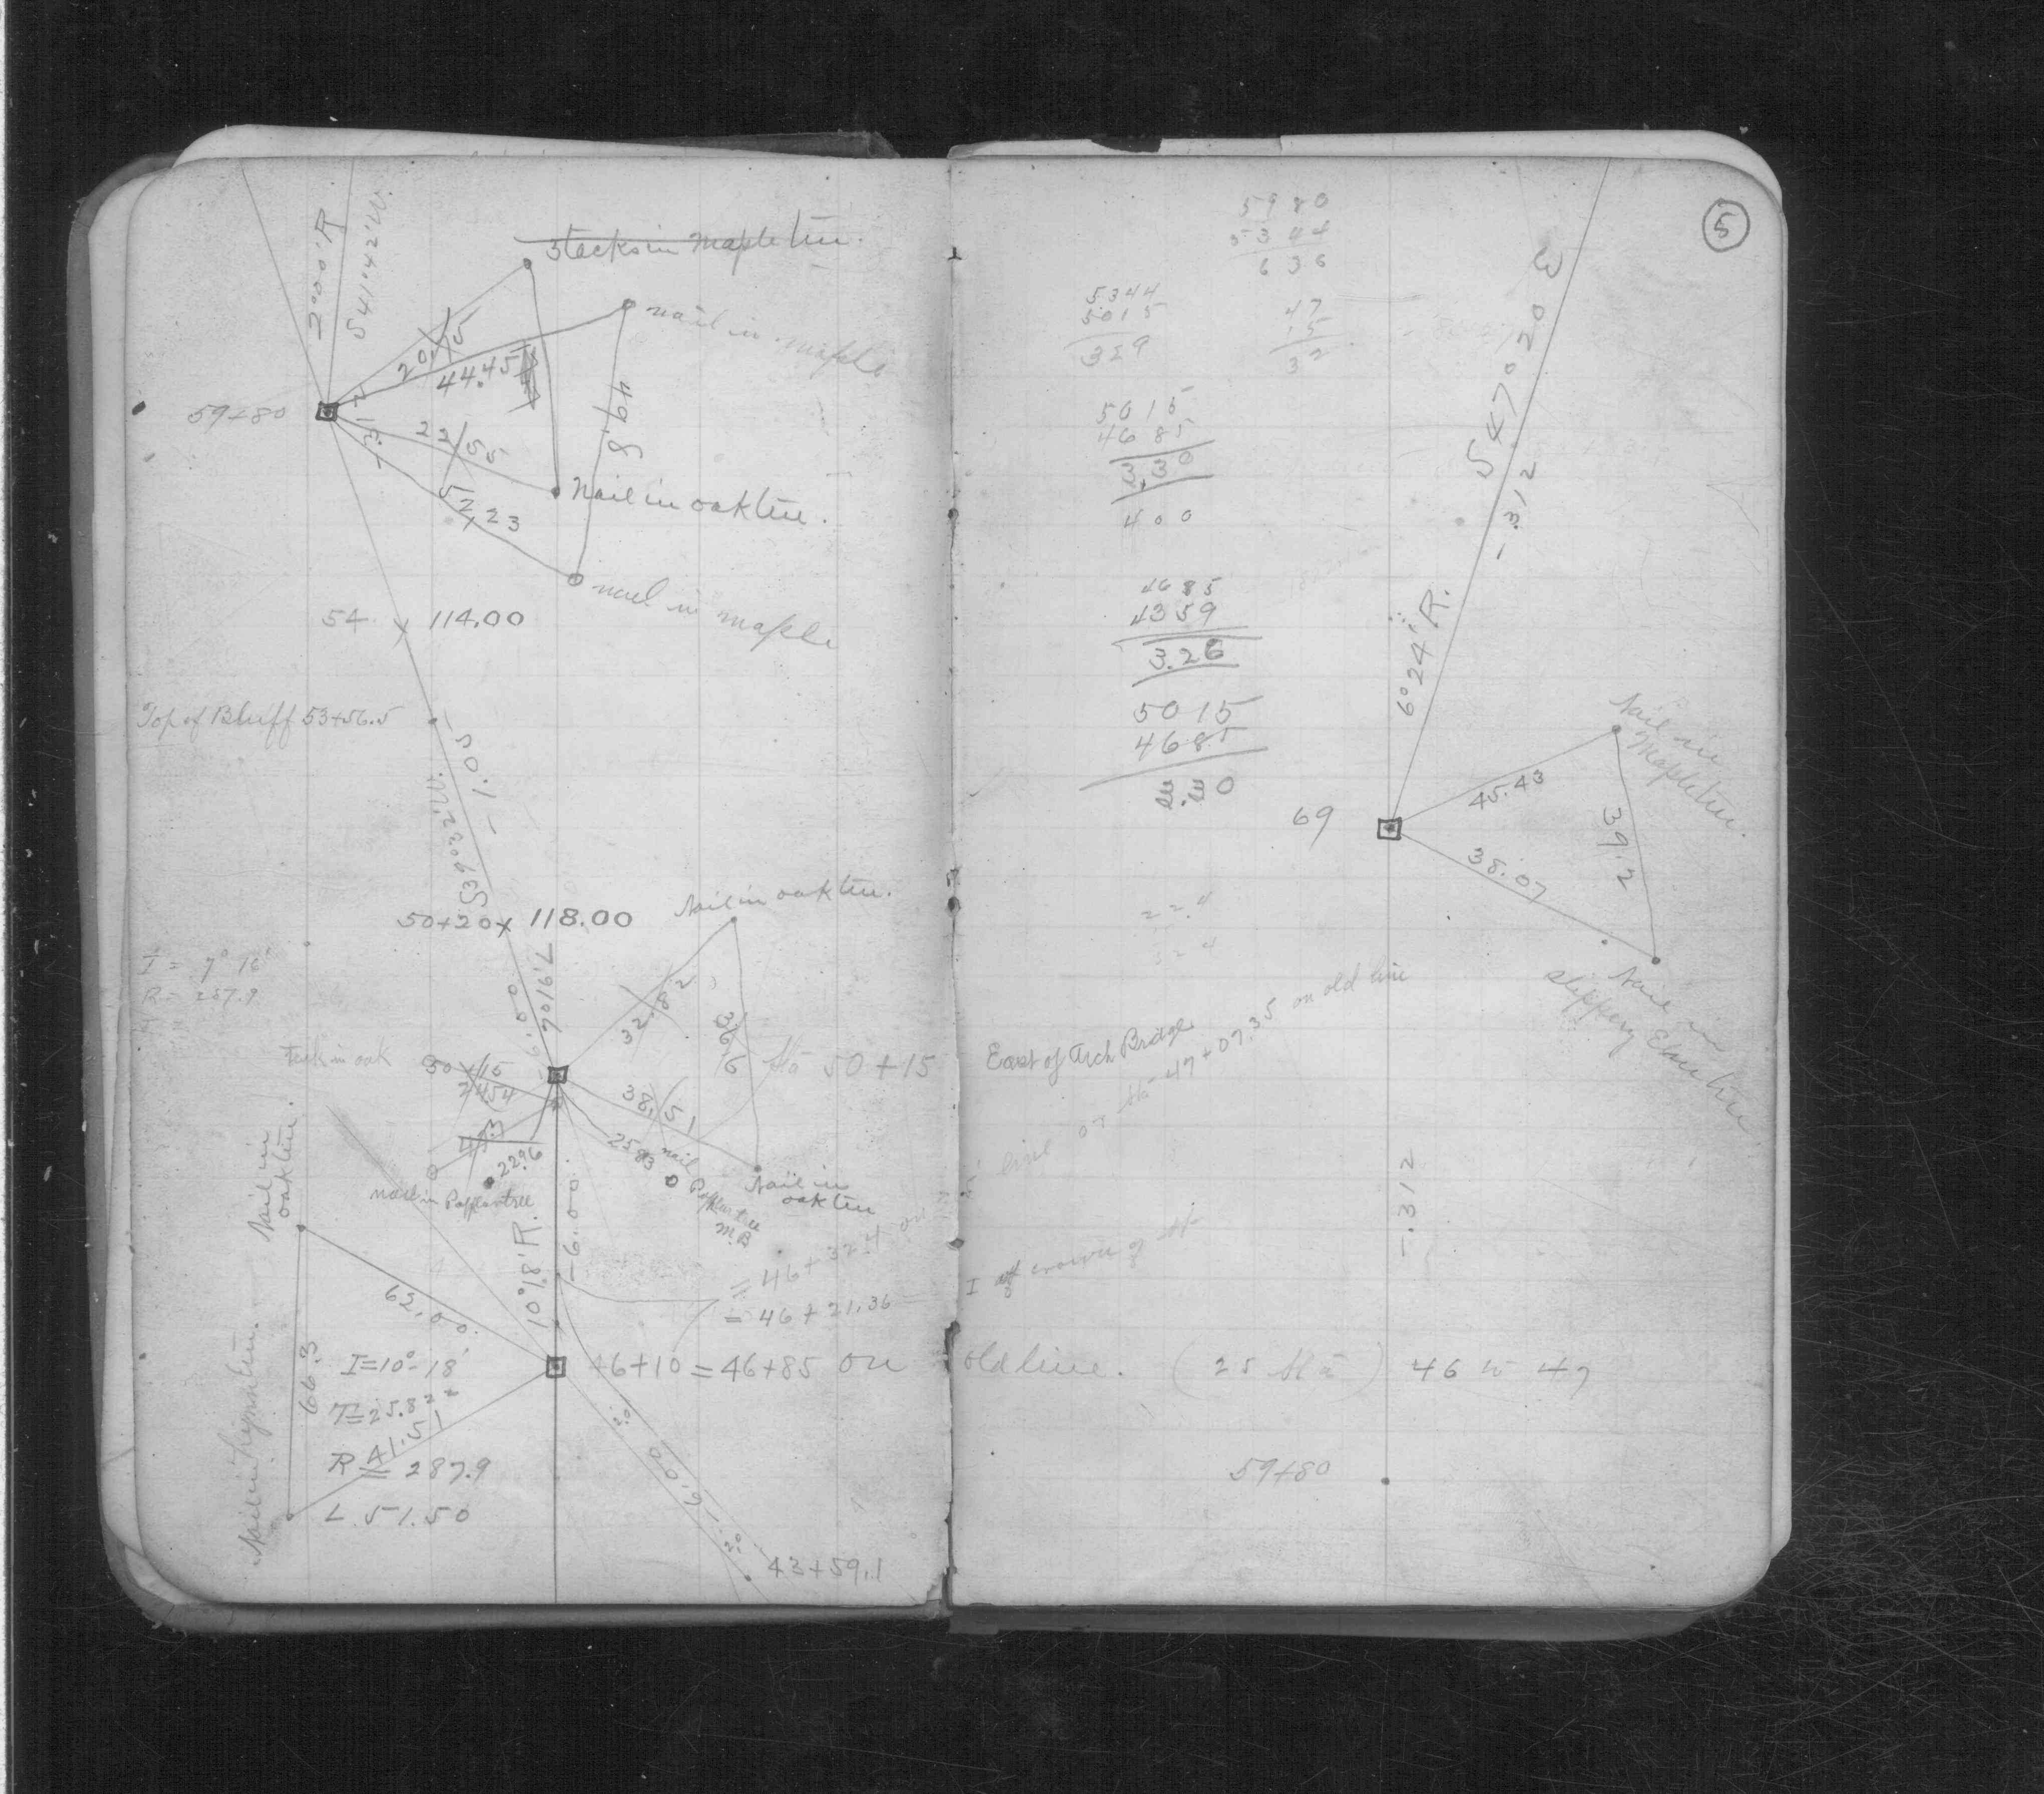 2°00'R
S41°42'W.
Stacks in Maple tree.
nail in maple
20.15
44.45
59+80
-.312
49.8
22.55
Nail in oak tree.
52.23
nail in maple
54 114.00
Top of Bluff 53+56.5
-1.05
S39°32'W.
50+20 x 118.00
Nail in oak tree.
I = 7° 16'
R = 287.9
7°16'L
-6.00
32.82
36.6
Sta 50+15
tack in oak
30.15
24.54
38.51
25.83
22.96
nail in Poplar tree
nail
Poplar tree
M.B
Nail in
oak tree
Nail in
oak tree.
10°18'R.
-6.00
= 46+32.4 on
= 46+21.36
62.00
66.3
I=10°-18'
46+10 = 46+85 on
T=25.82+
41.51
R = 287.9
L 51.50
20
-6.00
20
43+59.1
5
5980
5344
636
5344
5015
329
47
15
32
5015
4685
3.30
400
4685
4359
3.26
5015
4685
3.30
S47°02'0
-.312
6°24' R.
Nail in
Maple tree.
45.43
69
39.2
38.07
Nail in
slippery Elm tree
22.4
32.4
East of Arch Bridge
line or Sta 47+07.35 on old line
-.312
I of crown of
old line. (25 Sta) 46 to 47
59+80